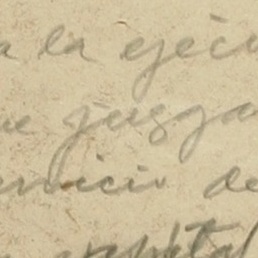 a la ejecu
ue juzga
ervicio de
capital